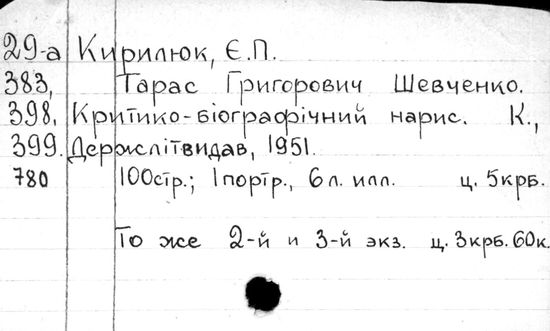 29-а Кирилюк, Є.П.
383, Тарас Григорович Шевченко.
398, Критико-біографічний нарис. К.,
399. Держлітвидав, 1951.
780 100стр.; 1портр., 6 л. илл. ц. 5крб.
То же 2-й и 3-й экз. ц. 3крб. 60к.